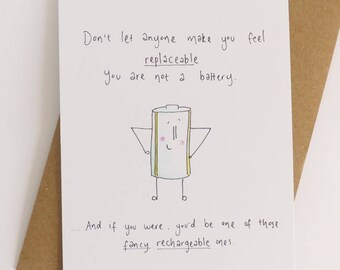 Don't let anyone make you feel
replaceable
you are not a battery.
... And if you were, you'd be one of those
fancy rechargeable ones.